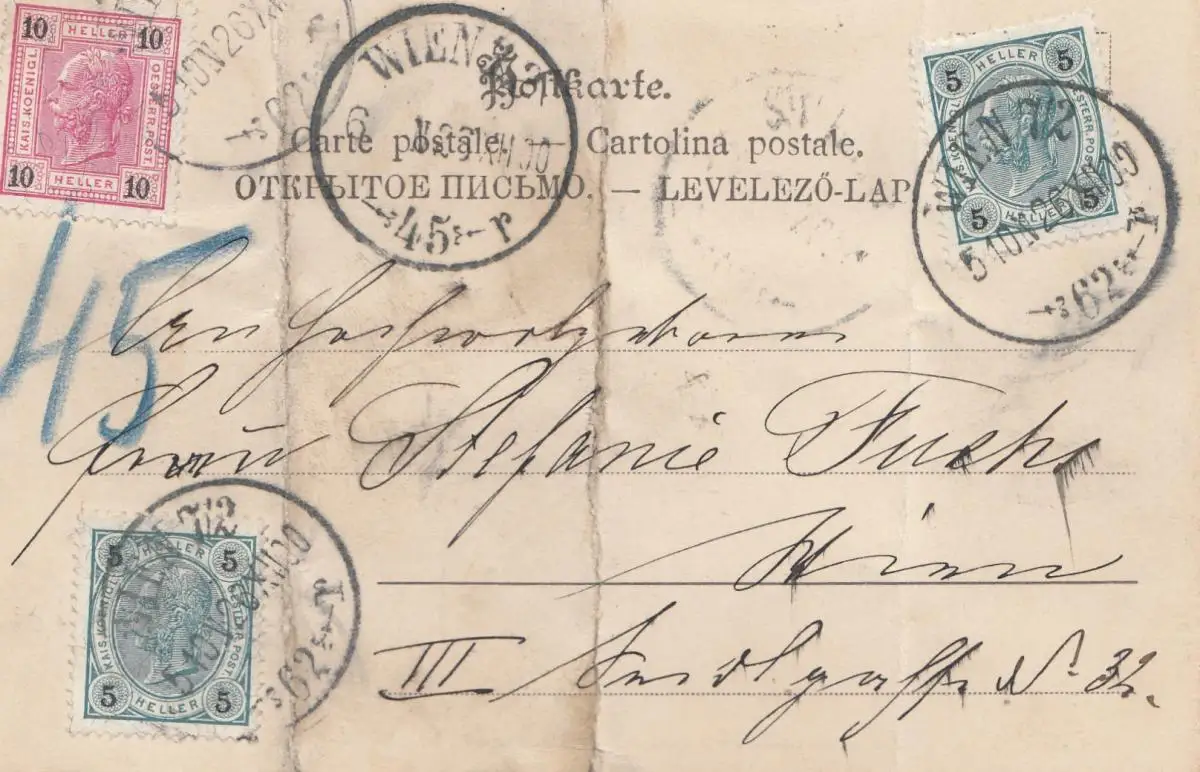 10 HELLER 10
KAIS. KOENIGL. OESTERR. POST
10 HELLER 10
5 HELLER 5
KAIS. KOENIGL. OESTERR. POST
5 HELLER 5
WIEN
45
WIEN 7/2
62
Postkarte.
Carte postale. — Cartolina postale.
ОТКРЫТОЕ ПИСЬМО. — LEVELEZŐ-LAP
45
Frau Stefanie Fuchs
Wien
III Seidlgasse № 32.
5 HELLER 5
KAIS. KOENIGL. OESTERR. POST
5 HELLER 5
7/2
62